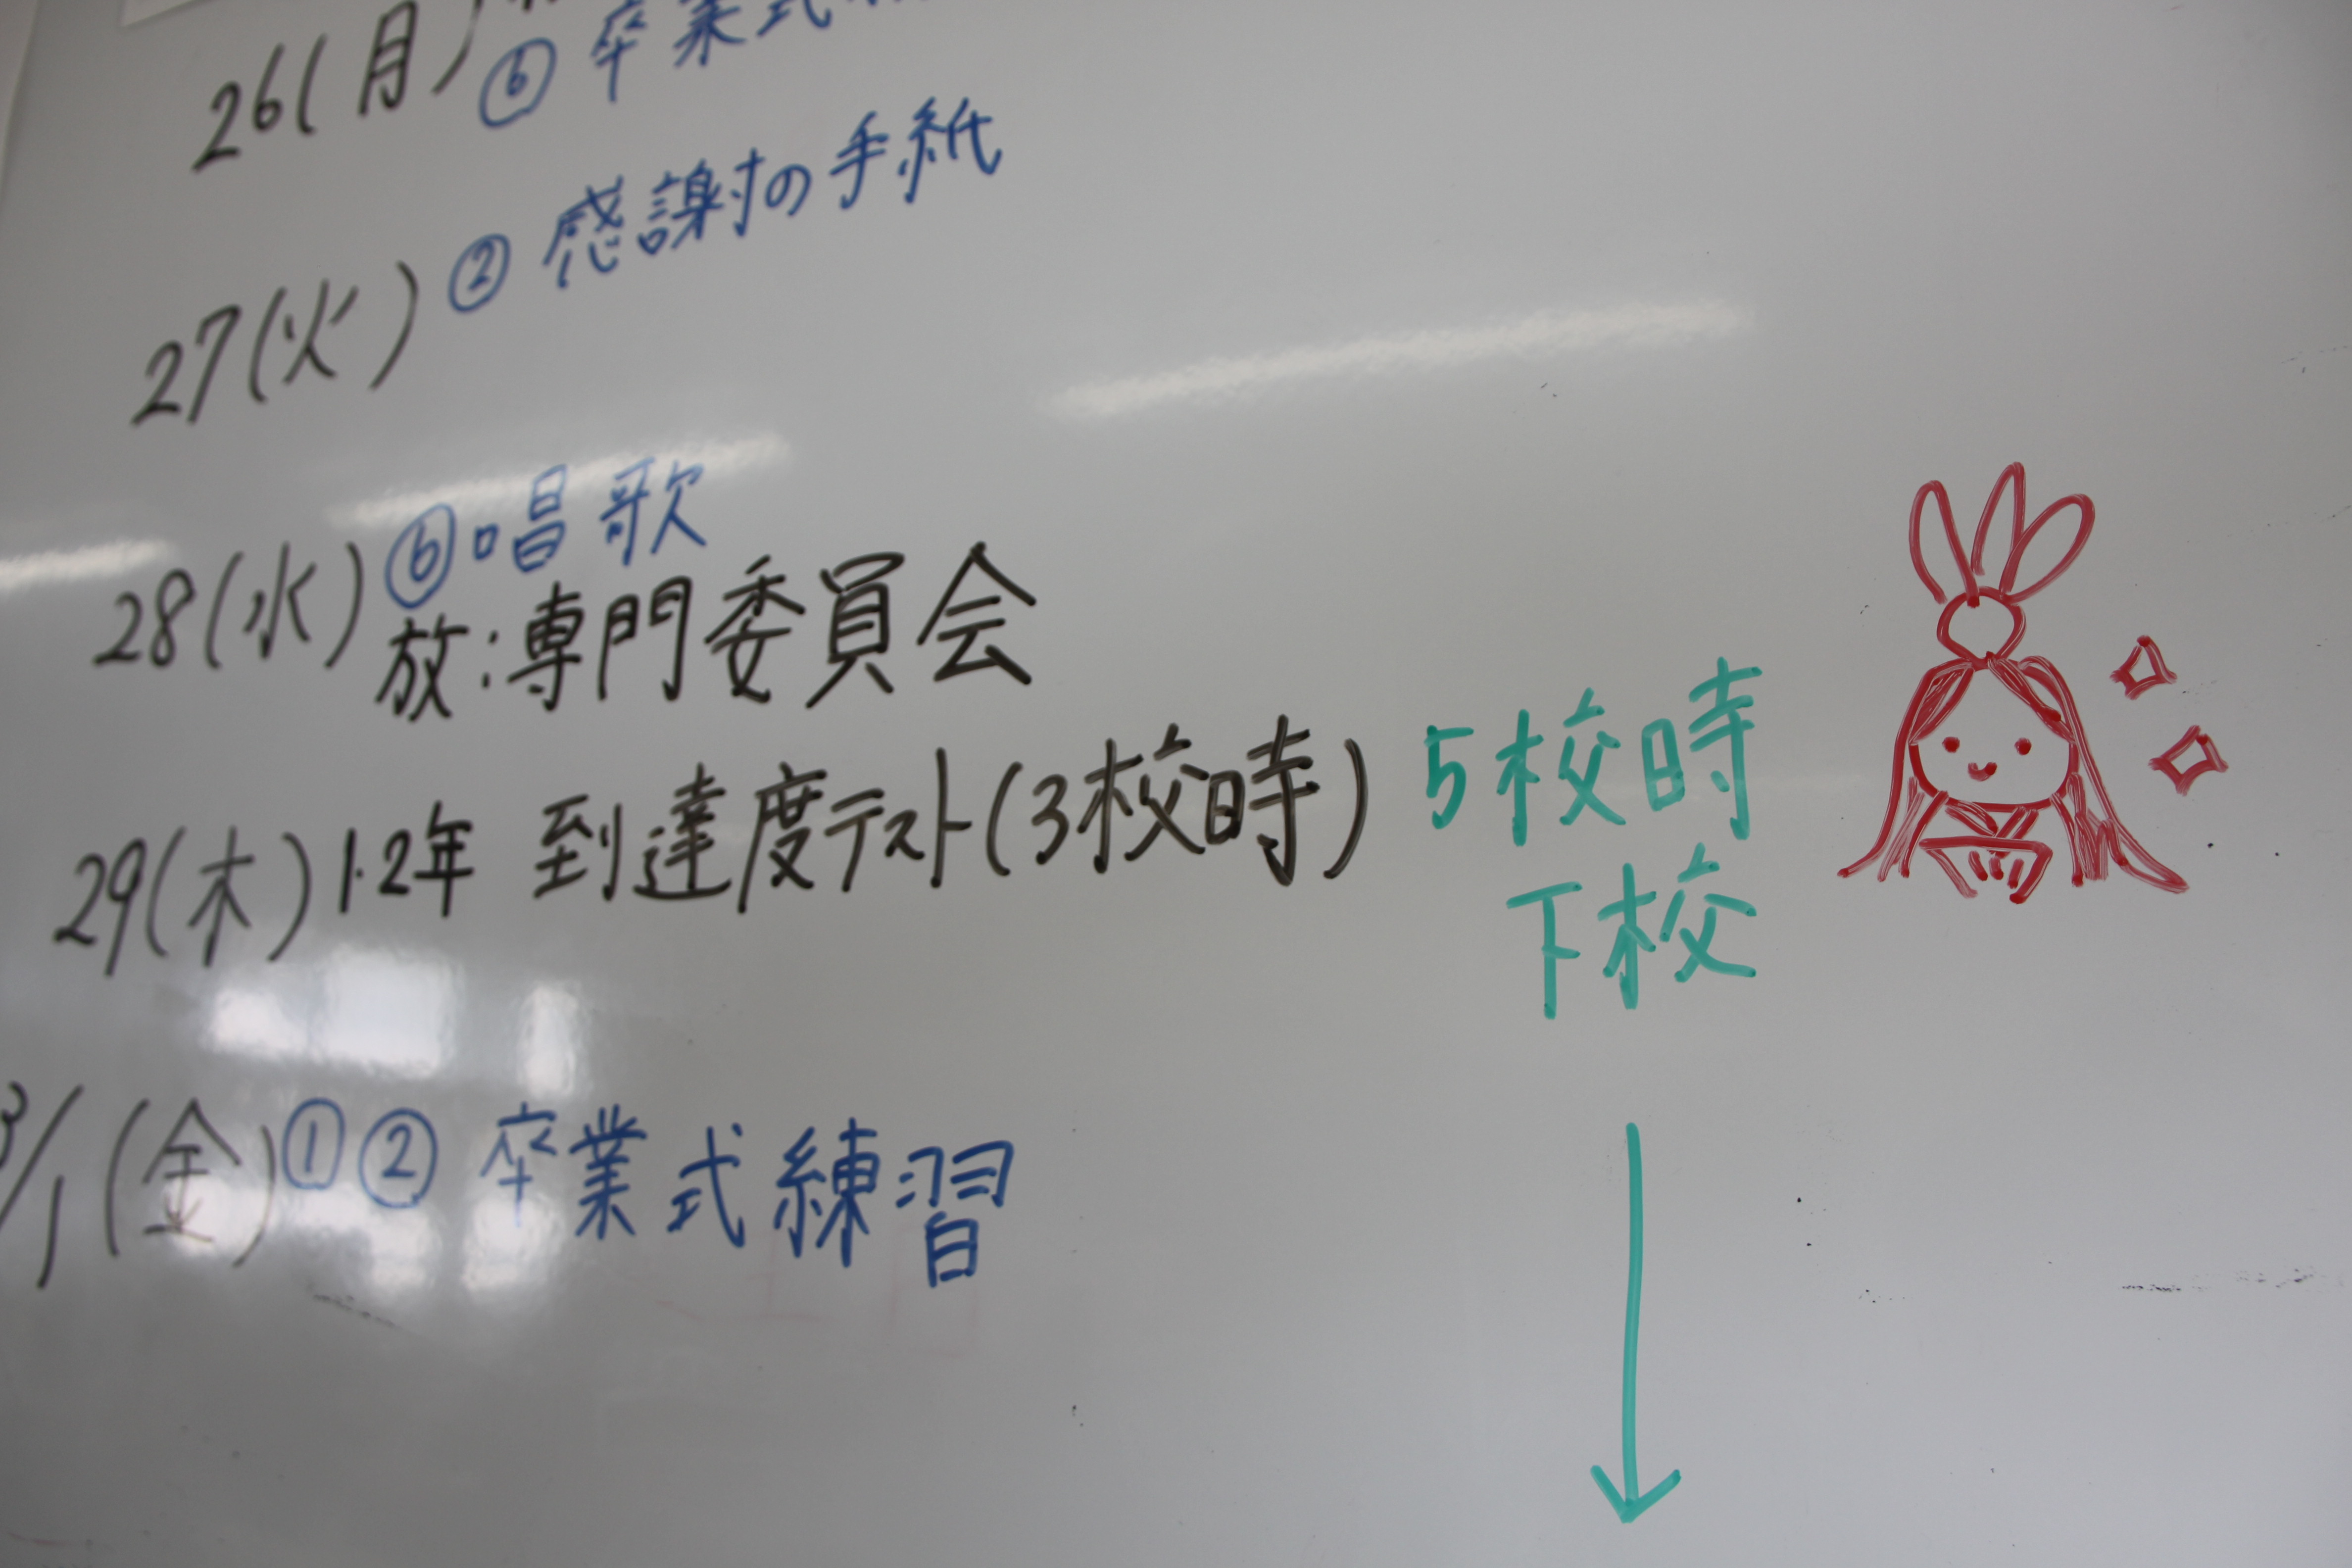 26(月)
⑥ 卒業式
27(火) ② 感謝の手紙
28(水) ⑥ 唱歌
放:専門委員会
29(木) 1.2年 到達度テスト(3校時) 5校時
下校
3/1(金) ①② 卒業式練習